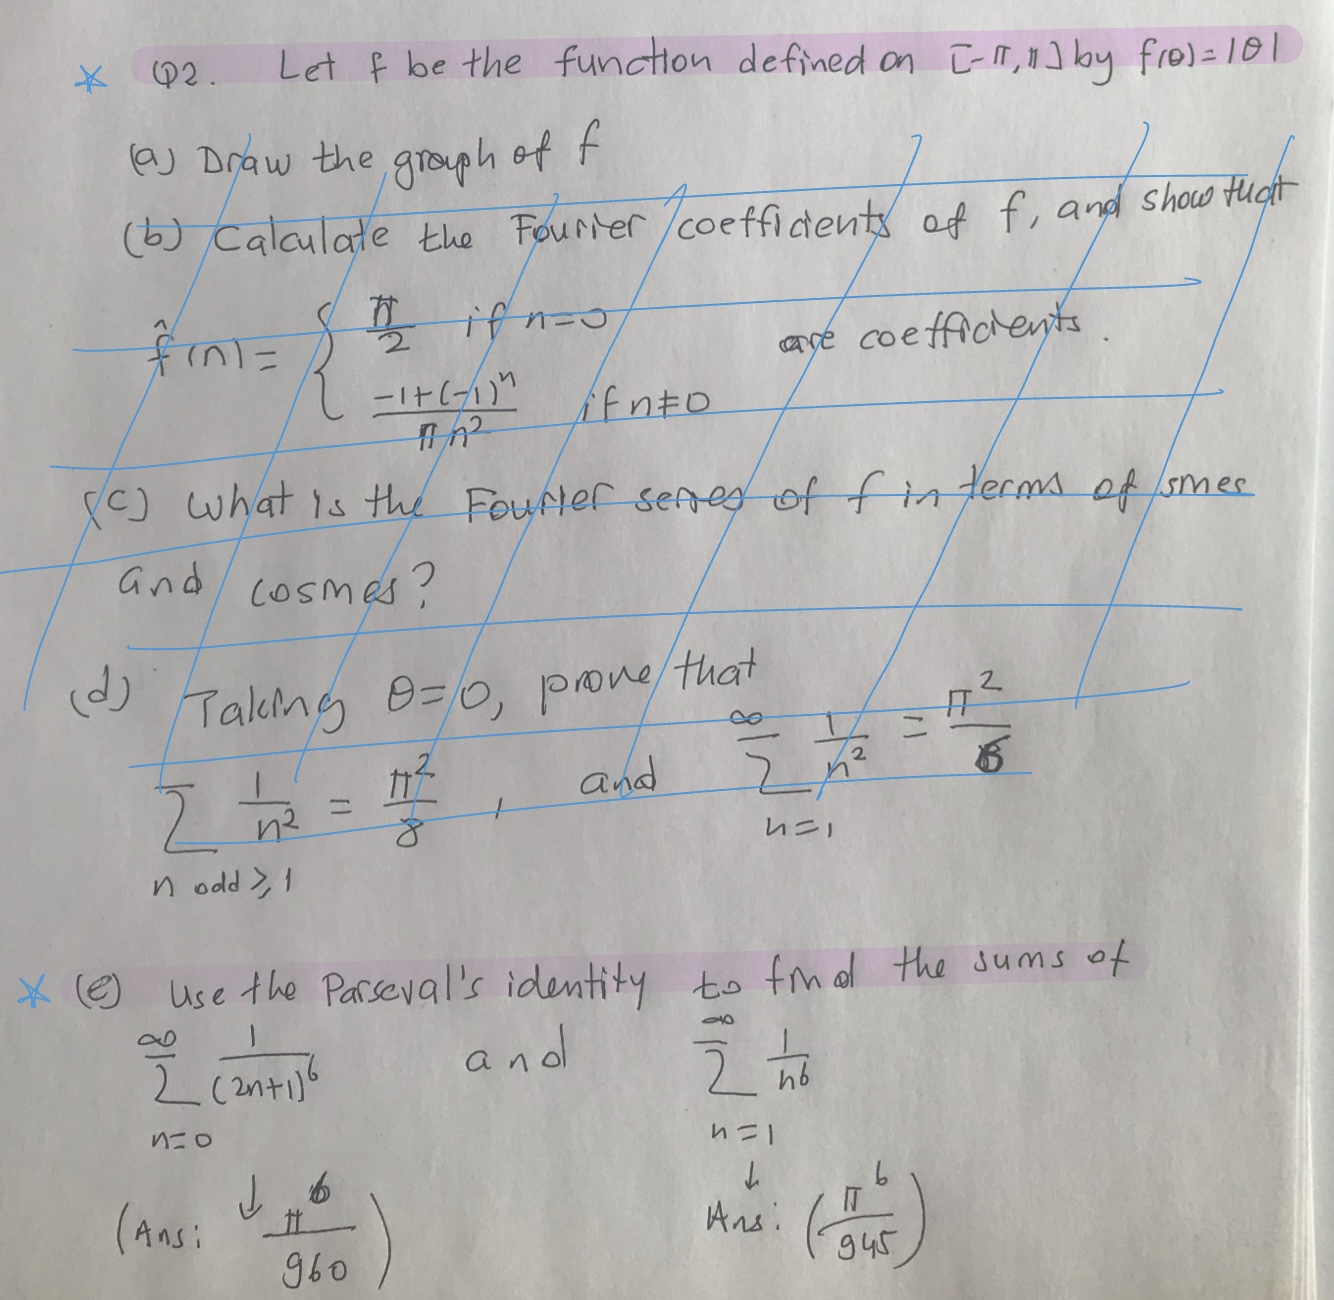 * Q2. Let f be the function defined on [-π, π] by f(θ) = |θ|
(a) Draw the graph of f
(b) Calculate the Fourier coefficients of f, and show that
f̂(n) = { π/2 if n=0 are coefficients.
(-1+(-1)^n)/(πn²) if n≠0
(c) What is the Fourier series of f in terms of sines
and cosines?
(d) Taking θ=0, prove that
∑_{n odd ≥ 1} 1/n² = π²/8, and ∑_{n=1}^{∞} 1/n² = π²/6
* (e) Use the Parseval's identity to find the sums of
∑_{n=0}^{∞} 1/(2n+1)^6 and ∑_{n=1}^{∞} 1/n^6
↓ ↓
(Ans: π^6/960) Ans: (π^6/945)